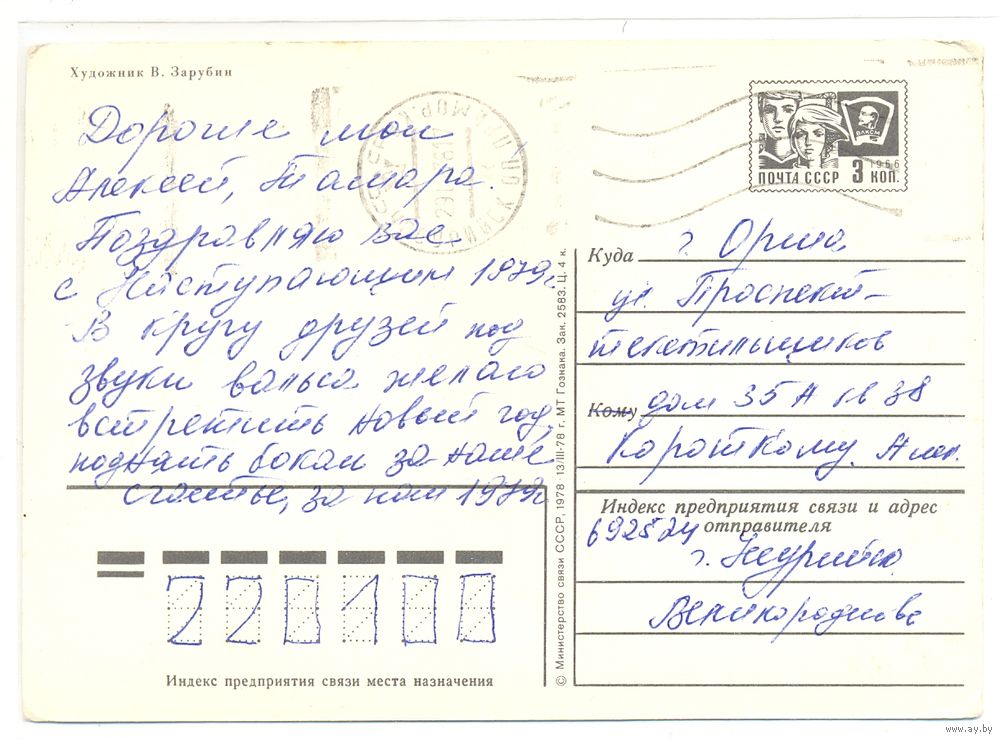 Художник В. Зарубин
Дорогие мои
Алексей, Тамара.
Поздравляю вас
с Наступающим 1979г
В кругу друзей под
звуки вальса желаю
встретить новый год,
поднять бокал за ваше
счастье, за наш 1979г
220100
Индекс предприятия связи места назначения
© Министерство связи СССР, 1978 13/III-78 г. МТ Гознака. Зак. 2583. Ц. 4 к.
ПОЧТА СССР 3 КОП.
1966
ВЛКСМ
Куда г. Орша
ул. Проспект-
текстильщиков
Кому дом 35 А кв 38
Короткому. Алек.
Индекс предприятия связи и адрес отправителя
692524
г.
www.ay.by